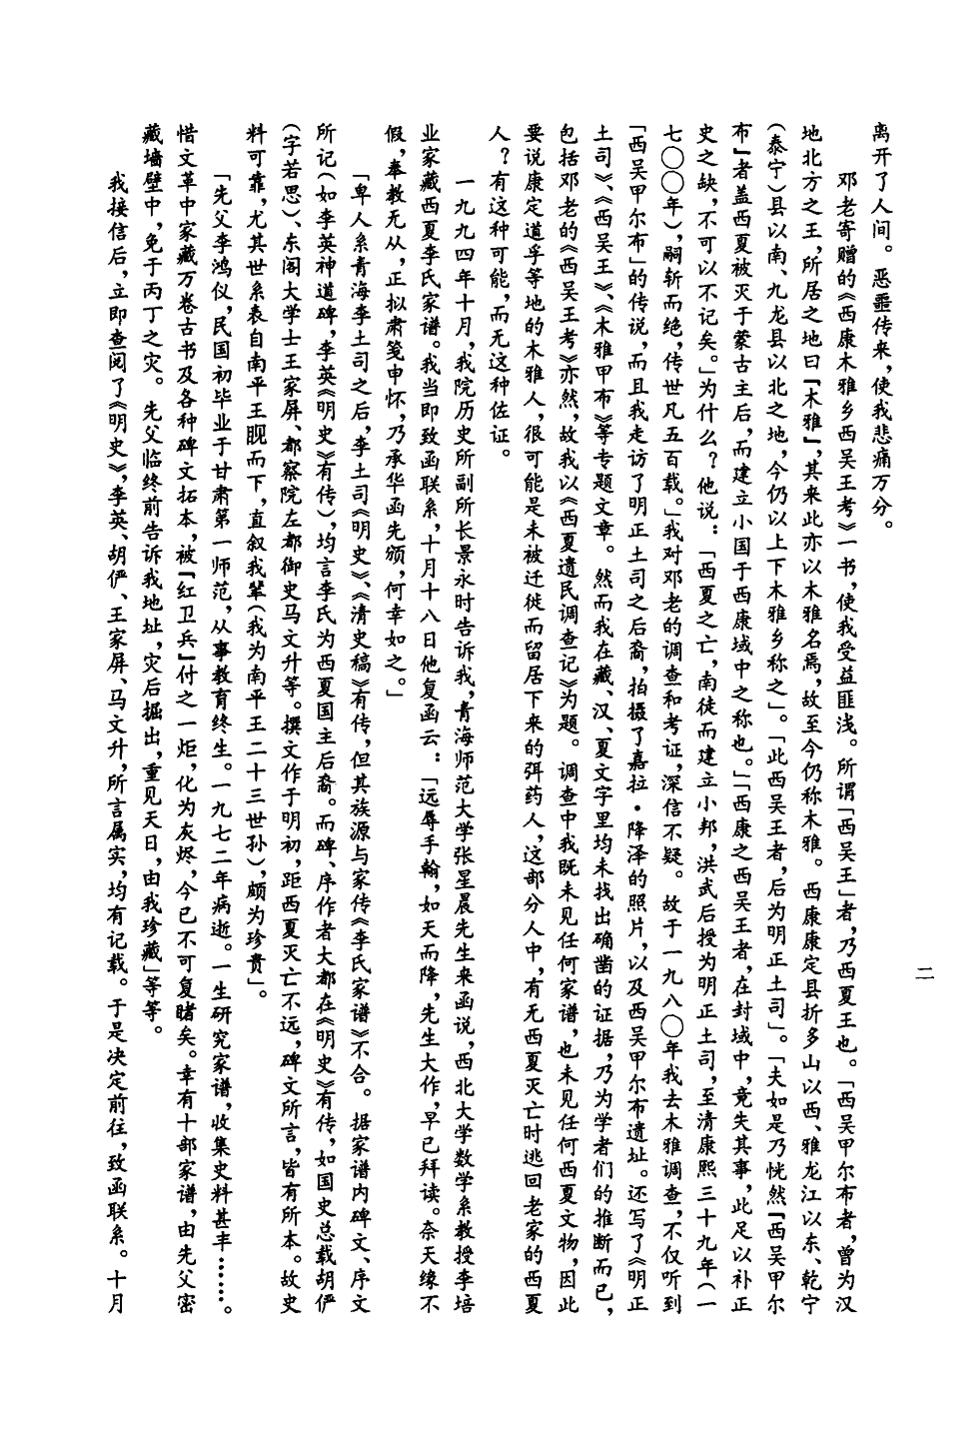 离开了人间。恶噩传来，使我悲痛万分。
邓老寄赠的《西康木雅乡西吴王考》一书，使我受益匪浅。所谓「西吴王」者，乃西夏王也。「西吴甲尔布者，曾为汉
地北方之王，所居之地曰『木雅』，其来此亦以木雅名焉，故至今仍称木雅。西康康定县折多山以西、雅龙江以东、乾宁
（泰宁）县以南、九龙县以北之地，今仍以上下木雅乡称之」。「此西吴王者，后为明正土司」。「夫如是乃恍然『西吴甲尔
布』者盖西夏被灭于蒙古主后，而建立小国于西康域中之称也。」「西康之西吴王者，在封域中，竟失其事，此足以补正
史之缺，不可以不记矣。」为什么？他说：「西夏之亡，南徒而建立小邦，洪武后授为明正土司，至清康熙三十九年（一
七〇〇年），嗣斩而绝，传世凡五百载。」我对邓老的调查和考证，深信不疑。故于一九八〇年我去木雅调查，不仅听到
「西吴甲尔布」的传说，而且我走访了明正土司之后裔，拍摄了嘉拉·降泽的照片，以及西吴甲尔布遗址。还写了《明正
土司》、《西吴王》、《木雅甲布》等专题文章。然而我在藏、汉、夏文字里均未找出确凿的证据，乃为学者们的推断而已，
包括邓老的《西吴王考》亦然，故我以《西夏遗民调查记》为题。调查中我既未见任何家谱，也未见任何西夏文物，因此
要说康定道孚等地的木雅人，很可能是未被迁徙而留居下来的弭药人，这部分人中，有无西夏灭亡时逃回老家的西夏
人？有这种可能，而无这种佐证。
一九九四年十月，我院历史所副所长景永时告诉我，青海师范大学张星晨先生来函说，西北大学数学系教授李培
业家藏西夏李氏家谱。我当即致函联系，十月十八日他复函云：「远辱手翰，如天而降，先生大作，早已拜读。奈天缘不
假，奉教无从，正拟肃笺申怀，乃承华函先颁，何幸如之。」
「卑人系青海李土司之后，李土司《明史》、《清史稿》有传，但其族源与家传《李氏家谱》不合。据家谱内碑文、序文
所记（如李英神道碑，李英《明史》有传），均言李氏为西夏国主后裔。而碑、序作者大都在《明史》有传，如国史总载胡俨
（字若思）、东阁大学士王家屏、都察院左都御史马文升等。撰文作于明初，距西夏灭亡不远，碑文所言，皆有所本。故史
料可靠，尤其世系表自南平王睍而下，直叙我辈（我为南平王二十三世孙），颇为珍贵」。
「先父李鸿仪，民国初毕业于甘肃第一师范，从事教育终生。一九七二年病逝。一生研究家谱，收集史料甚丰……。
惜文革中家藏万卷古书及各种碑文拓本，被『红卫兵』付之一炬，化为灰烬，今已不可复睹矣。幸有十部家谱，由先父密
藏墙壁中，免于丙丁之灾。先父临终前告诉我地址，灾后掘出，重见天日，由我珍藏」等等。
我接信后，立即查阅了《明史》，李英、胡俨、王家屏、马文升，所言属实，均有记载。于是决定前往，致函联系。十月
二